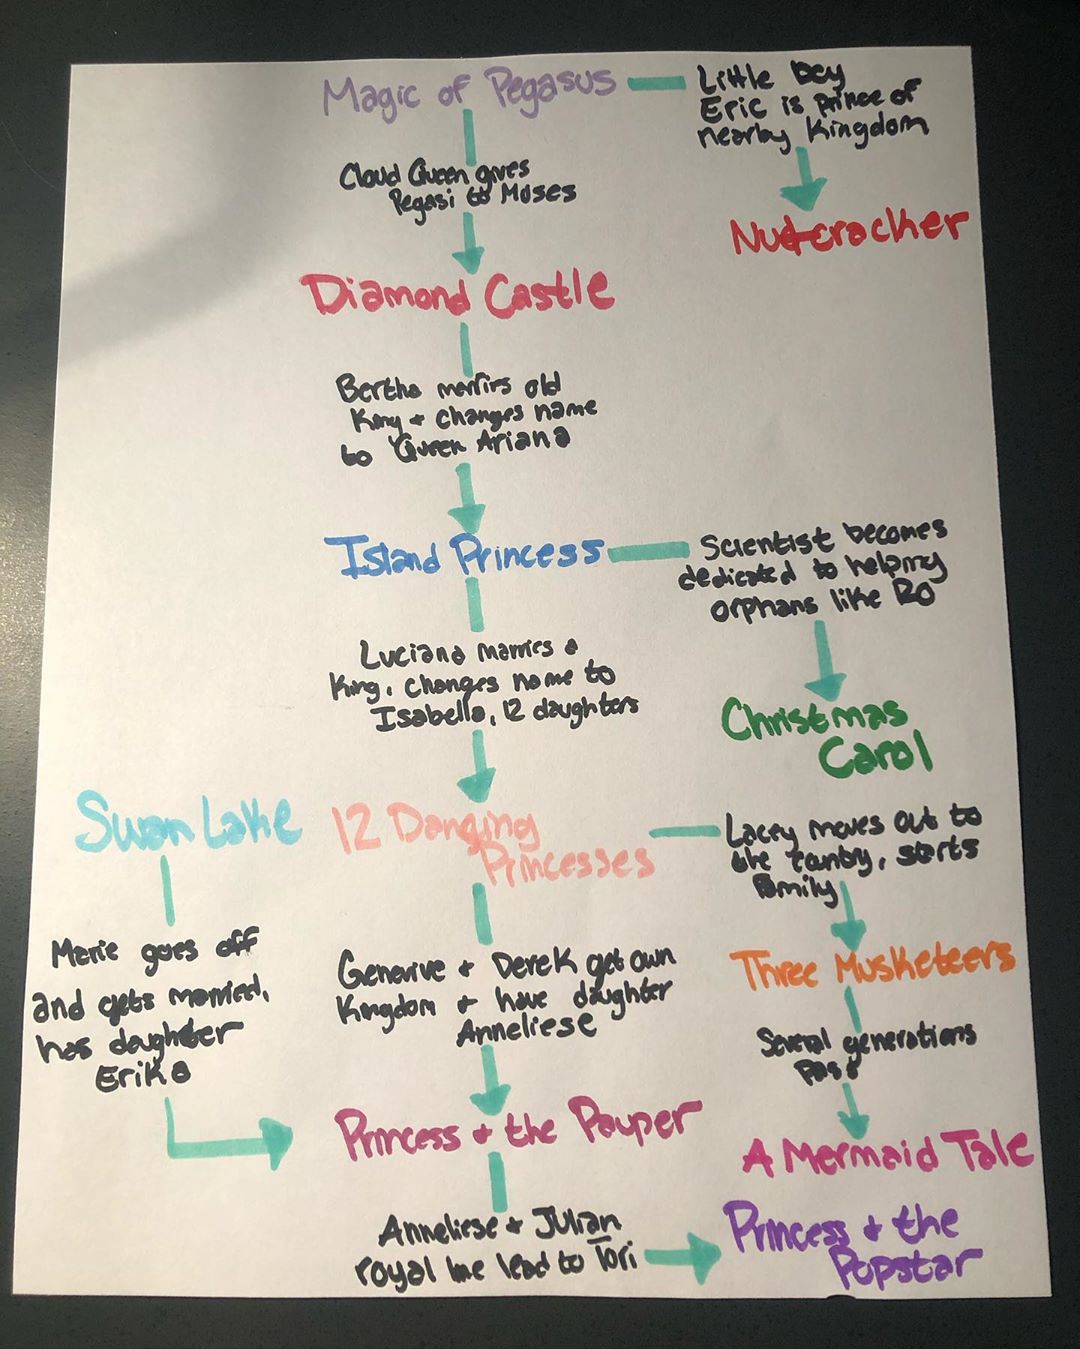 Magic of Pegasus
Little boy
Eric is prince of
nearby Kingdom
Cloud Queen gives
Pegasi to Muses
Nutcracker
Diamond Castle
Bertha marries old
King + changes name
to Queen Ariana
Island Princess
Scientist becomes
dedicated to helping
orphans like Ro
Luciana marries a
King, changes name to
Isabella, 12 daughters
Christmas
Carol
Swan Lake
12 Dancing
Princesses
Lacey moves out to
the country, starts
family
Marie goes off
and gets married,
has daughter
Erika
Genevive + Derek get own
Kingdom + have daughter
Anneliese
Three Musketeers
Several generations
Pass
Princess + the Pauper
A Mermaid Tale
Anneliese + Julian
royal line lead to Tori
Princess + the
Popstar